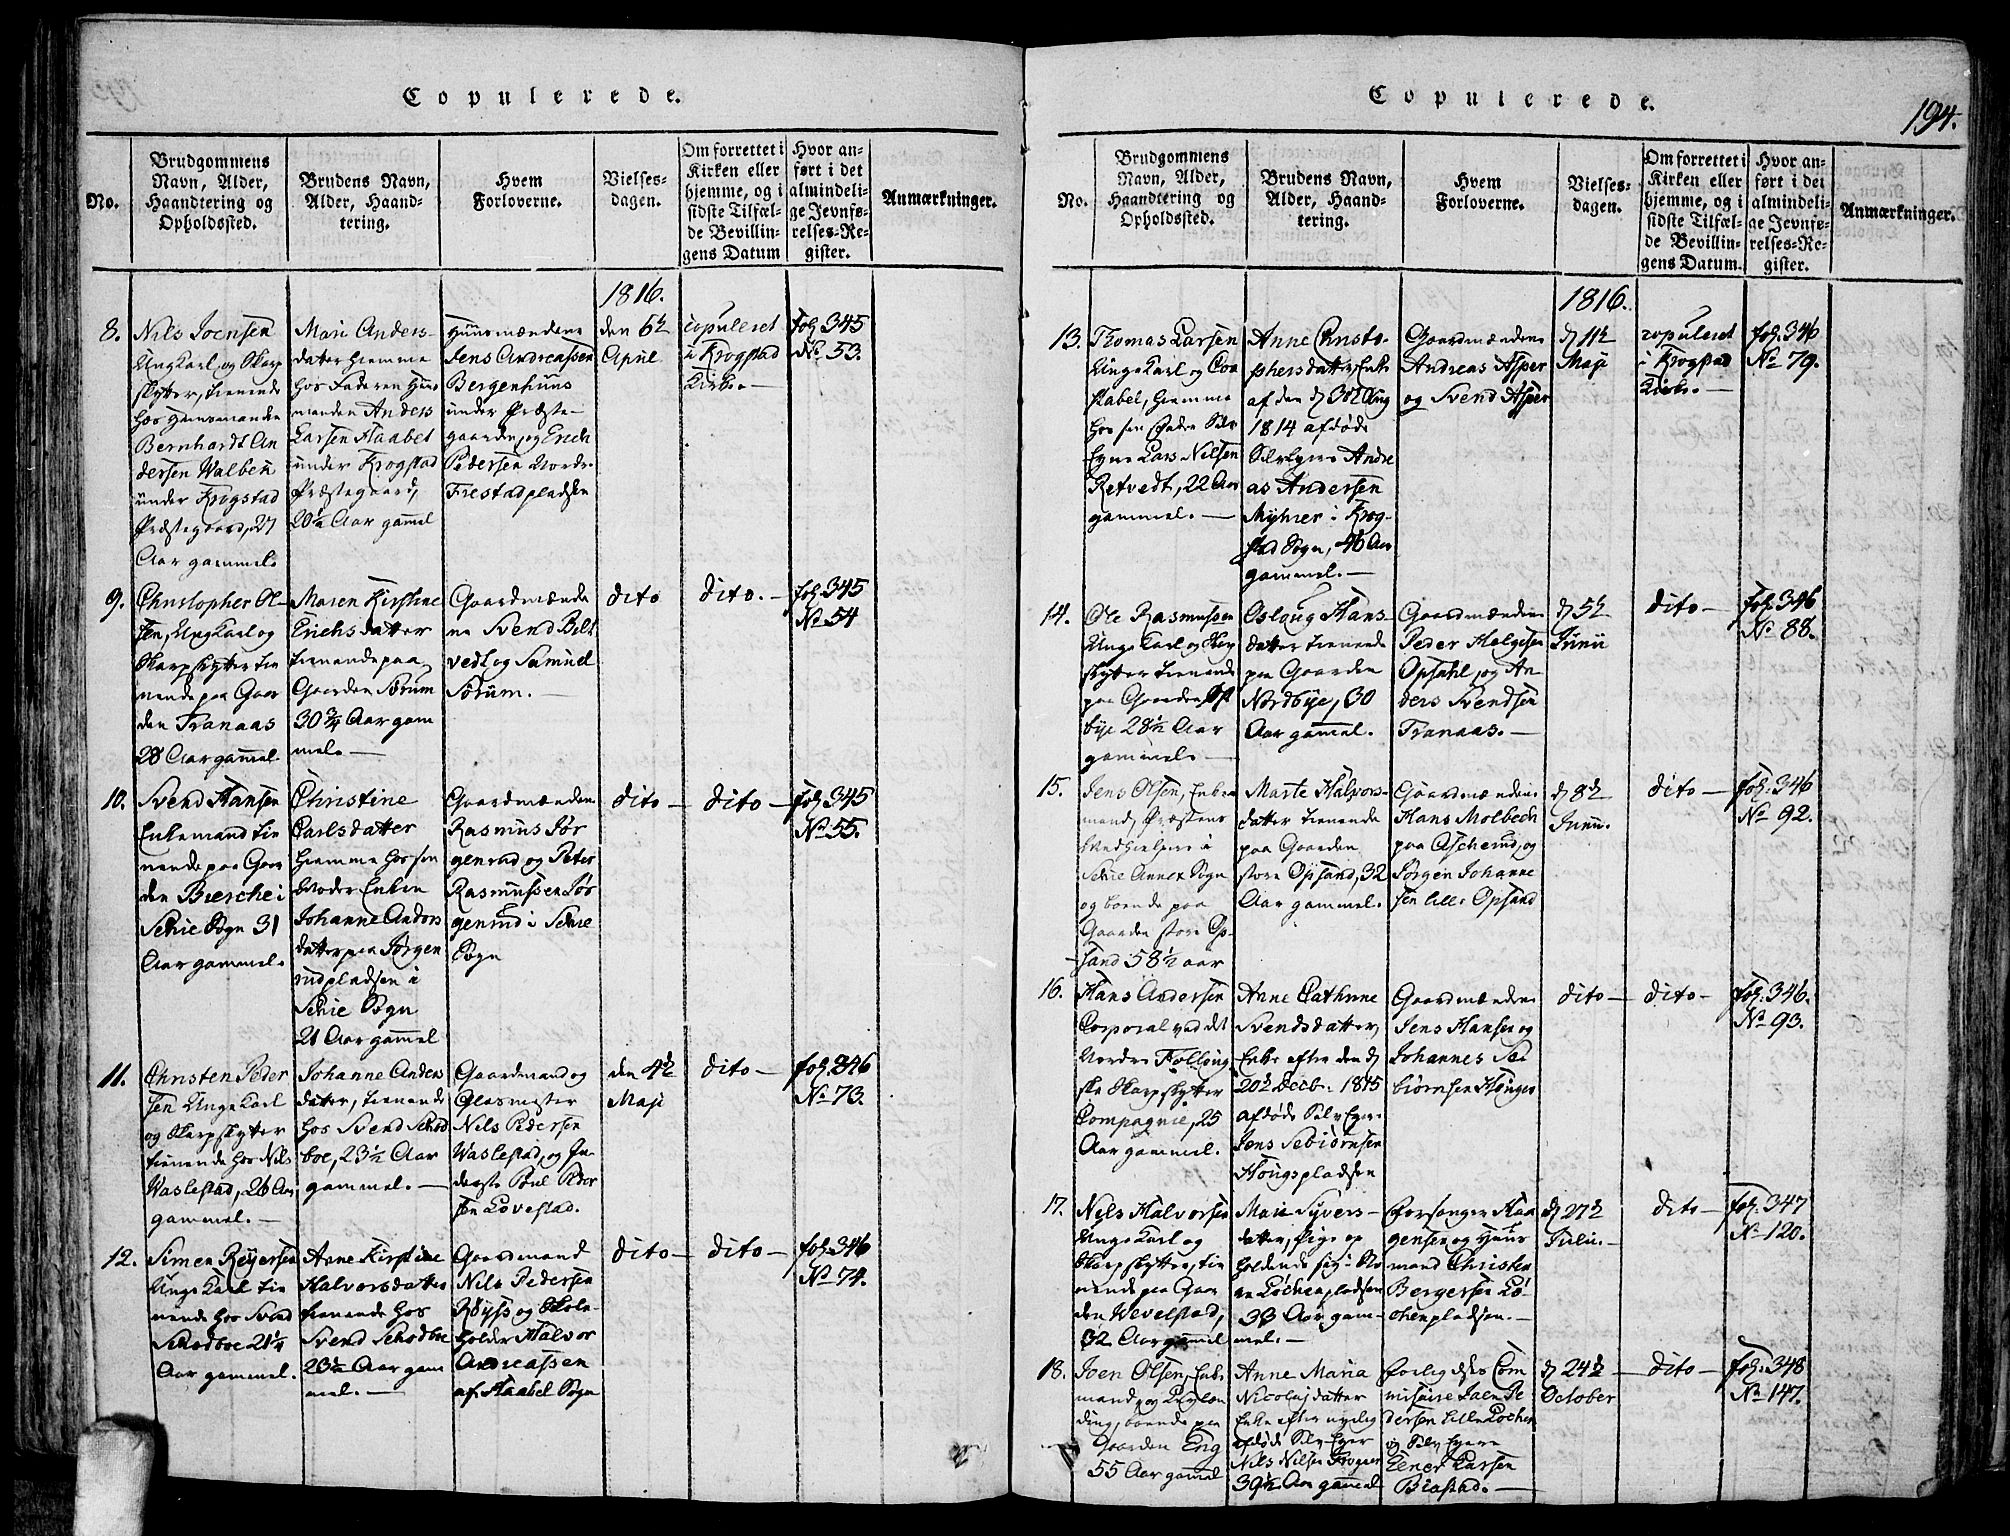 Copulerede.
No.
Brudgommens
Navn, Alder,
Haandtering og
Opholdssted.
Brudens Navn,
Alder, Haand-
tering.
Hvem
Forloverne.
Vielses-
dagen.
Om forrettet i
Kirken eller
hjemme, og i
sidste Tilfæl-
de Bevillin-
gens Datum
Hvor an-
ført i det
almindeli-
ge Jevnfø-
relses-Re-
gister.
Anmærkninger.
1816.
8.
Nils Joensen
Ungkarl og Skarp
skytter, tienende
hos Huusmanden
Bernhardt An
dersen Walbek
under Krogstad
Præstegaard, 27
Aar gammel.
Mari Anders-
datter hiemme
hos Faderen Huus
manden Anders
Larsen Haabet
under Krogstad
Præstegaard,
20¼ Aar gam̄el
Huusmændene
Jens Andreassen
Bergenhuus
under Præste-
gaarden, og Erich
Pedersen Nordre
Frestadpladsen
den 6te
April
copuleret
i Krogstad
Kirke.—
fol. 345
No. 53.
9.
Christopher Ol-
sen, Ungkarl og
Skarpskytter tie
nende paa Gaar
den Tranaas
28 Aar gam̄el.
Maren Kirstine
Erichsdatter
tienende paa
Gaarden Sørum
30¾ Aar gam
mel.—
Gaardmænde
ne Svend Belt
vedt og Samuel
Sørum.—
dito
dito.—
fol. 345
No 54
10.
Svend Hansen
Enkemand tie
nende paa Gaar
den Bierche i
Schie Sogn 31
Aar gammel.
Christine
Carlsdatter
hiemme hos sin
Moder Enken
Johanne Anders
datter paa Jørgen
rudpladsen i
Schie Sogn
21 Aar gam̄el
Gaardmændene
Rasmus Jør
genrud og Peter
Rasmussen Jør
genrud i Schie
Sogn
dito—
dito—
fol. 345
No 55.
11.
Christen Peder
sen Unge Karl
og Skarpskytter
tienende hos Nils
Waslestad, 26 Aar
gammel.—
Johanne Anders
datter, tienende
hos Svend Schod
boe, 23½ Aar
gammel.—
Gaardmand og
Glasmester
Nils Pedersen
Waslestad, og In-
derste Poul Peder
sen Løvestad.
den 4de
Maji
dito—
fol. 346
No 73.
12.
Simen Reyersen
Unge Karl tie
nende hos Svend
Schodboe 21¼
Aar gammel.
Anne Kirstine
Halvorsdatter
tienende hos
Svend Schodboe
23½ Aar gam
mel.—
Gaardmand
Nils Pedersen
Røyss og Skole
holder Halvor
Andreassen
af Haabel Sogn
dito—
dito—
fol. 346
No 74.
Copulerede.
194.
No.
Brudgommens
Navn, Alder,
Haandtering og
Opholdssted.
Brudens Navn,
Alder, Haand-
tering.
Hvem
Forloverne.
Vielses-
dagen.
Om forrettet i
Kirken eller
hjemme, og i
sidste Tilfæl-
de Bevillin-
gens Datum.
Hvor an-
ført i det
almindeli-
ge Jevnfø-
relses-Re-
gister.
Anmærkninger.
1816.
13.
Thomas Larsen
Unge Karl og Con
stabel, hiemme
hos sin Fader Selv
Eyer Lars Nilsen
Retvedt, 22 Aar
gammel.—
Anne Christo-
phersdatter, Enke
af den d 30te Aug
1814 afdøde
Selveyer Andre
as Andersen
Myhrer i Krog-
stad Sogn, 46 Aar
gammel.—
Gaardmændene
Andreas Asper
og Svend Asper
d 11te
Maji
copuleret
i Krogstad
Kirke.—
fol. 346
No 79.
14.
Ole Rasmussen
Unge Karl og Skarp
skytter tienende
paa Gaarden
bye 28½ Aar
gammel.—
Osloug Hans-
datter tienende
paa Gaarden
Nordbye, 30
Aar gam̄el.
Gaardmændene
Peder Helgesen
Opsahl, og An-
ders Svendsen
Tranaas.—
d 5te
Junii
dito—
fol. 346
No. 88.
15.
Jens Olsen, Enke
mand, Præstens
Medhielper i
Schie Annex Sogn
og boende paa
Gaarden store Op-
sand 58½ aar
Marte Halvors-
datter tienende
paa Gaarden
store Opsand, 32
Aar gammel.
Gaardmændene
Hans Molbech
paa Ascherud, og
Jørgen Johanne
sen lille Opsand
d 8de
Junii.
dito—
fol. 346
No 92.
16.
Hans Andersen
Corporal ved det
Nordre Follong
ske Skarpskytter
Compagnie, 25
Aar gammel.
Anne Cathrine
Svendsdatter,
Enke efter den d
20de Decb. 1815
afdøde Selv Eyer
Jens Sebiørnsen
Hougspladsen
Gaardmændene
Jens Hansen og
Johannes Se
biørnsen Honger
dito—
dito—
fol. 346.
No 93.
17.
Nils Halvorsen
Unge Karl og
Skarpskytter, tie
nende paa Gaar
den Wevelstad,
32 Aar gam̄el
Mari Syvers-
datter, Pige op
holdende sig i No
re Løchenpladsen
33 Aar gam-
mel.—
Forsanger Haa
gensen og Huus
mand Christen
Bergersen Lø-
chenpladsen.—
d 27de
Julii.—
dito—
fol. 347
No 120.
18.
Joen Olsen, Enke
mand, og
boende paa
Gaarden Eng
55 Aar gam̄el
Anne Maria
Nicolajdatter
Enke efter nylig
afdøde Selv Eyer
Nils Nilsen Frogner
39½ Aar gam̄el
Forligelses Com
missaire Joen Pe
dersen lille Løchen
og Selv Eyere
Ener Larsen
Biøstad.—
d 24de
October
dito—
fol. 348
No 147.